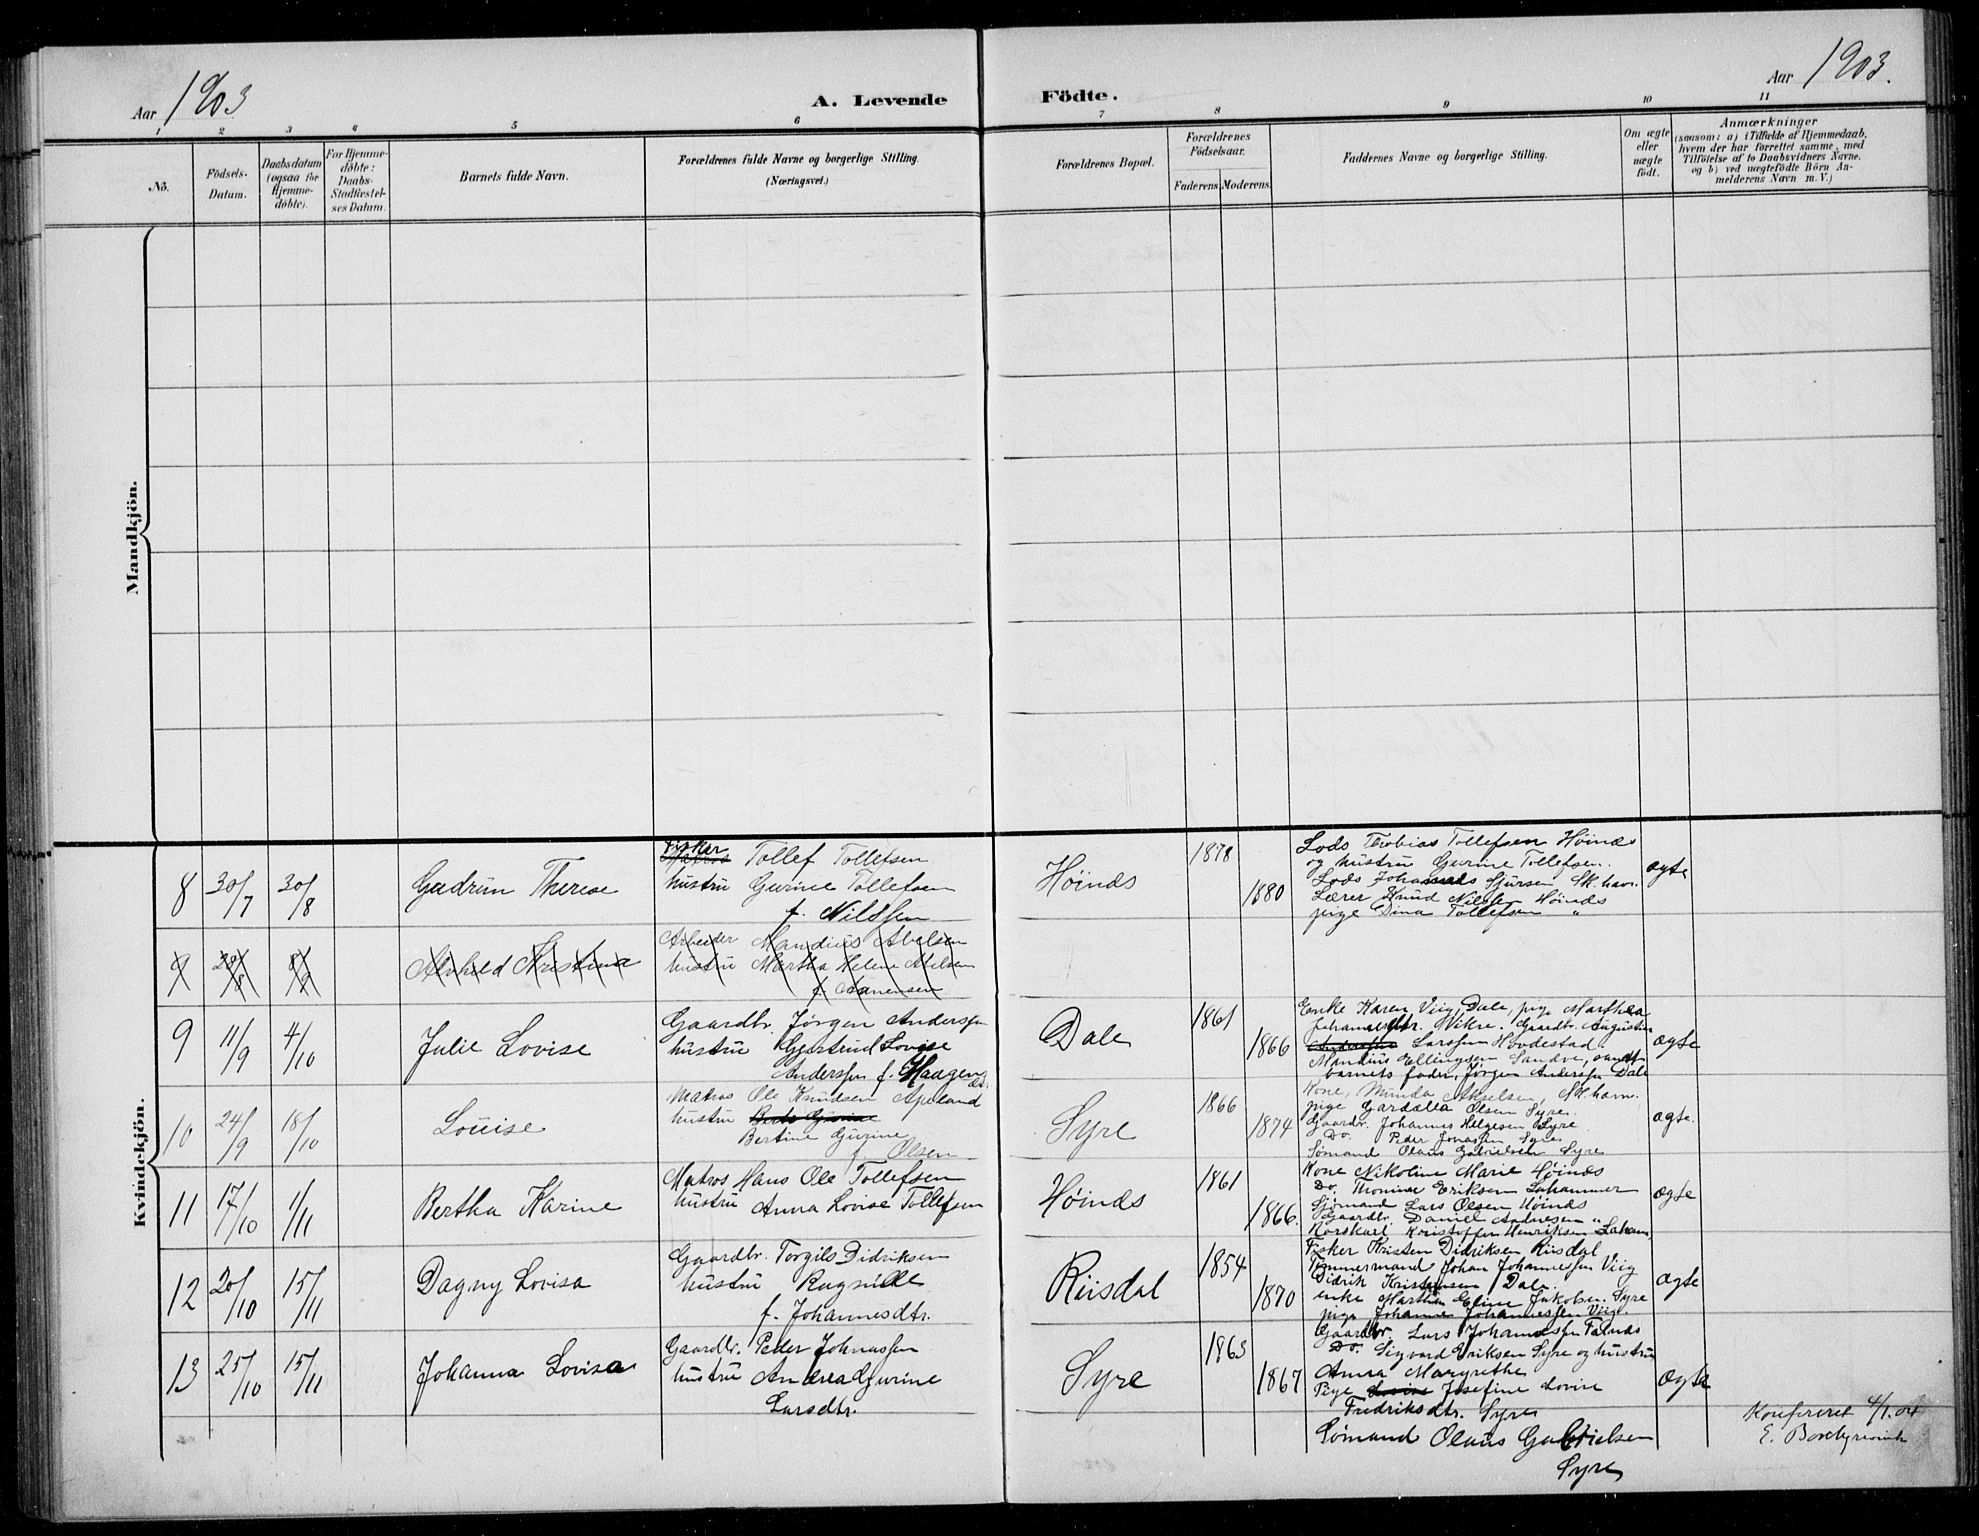 Aar 1903
A. Levende Födte.
Aar 1903.
1 2 3 4 5 6 7 8 9 10 11
Nō.
Födsels-
Datum.
Daabsdatum
(ogsaa for
Hjemme-
döbte).
For Hjemme-
döbte:
Daabs-
Stadfæstel-
ses Datum.
Barnets fulde Navn.
Forældrenes fulde Navne og borgerlige Stilling.
(Næringsvei.)
Forældrenes Bopæl.
Forældrenes
Födselsaar.
Faderens. Moderens.
Faddernes Navne og borgerlige Stilling.
Om ægte
eller
uægte
födt.
Anmærkninger
(saasom: a) i Tilfælde af Hjemmedaab,
hvem der har forrettet samme, med
Tilföielse af to Daabsvidners Navne,
og b) ved uægtefödte Börn An-
melderens Navn m. V.)
Mandkjön.
Kvindekjön.
8 30/7 30/8 Gudrun Therese
Fisker Matros Tollef Tollefsen
hustru Gurine Tollefsen
f. Nilssen
Høinds
1878
1880
Lods Thobias Tollefsen Høinds
og hustru Gurine Tollefsen.
Lods Johannes Sjursen Sk.havn.
Lærer Knud Nilsen Høinds
pige Dina Tollefsen "
ægte
9 28/8 8/9 Alvhild Kristina
Arbeider Mandius Abelsen
hustru Martha Helene Abelsen
9 11/9 4/10 Julie Lovise
Gaardbr. Jørgen Anderssen
hustru Gjertrud Lovise
Anderssen f. Haagens
dt.
Dale
1861
1866
Enke Karen Viig, Dale, pige Marthea
Johannesdtr. Vikre. Gaardbr. Augustin
Larssen Hovdestad.
Mandius Ellingsen Sandve, samt
barnets fader, Jørgen Anderssen Dale
ægte
10 24/9 18/10 Louise
Matros Ole Knudsen Apeland
hustru
Bertine Gurine
f. Olsen
Syre
1866
1874
Kone, Munda Athelsen, Sk.havn.
pige Gardalia Olsen Syre.
Gaardbr. Johannes Helgesen Syre
Do. Peder Jonassen Syre
Sømand Olaus Gabrielsen Syre
ægte.
11 17/10 1/11 Bertha Karine
Matros Hans Ole Tollefsen
hustru Anna Lovise Tollefsen
Høinds
1861
1866.
Kone Nikoline Marie Høinds
Do. Thomine Eriksen Lahammer
Sjømand Lars Olsen Høinds
Gaardbr. Daniel Andresen "
Kristoffer Henriksen Laham
ægte
12 20/10 15/11 Dagny Lovisa
Gaardbr. Torgils Didriksen
hustru Ragnilde
f. Johannesdtr.
Riisdal
1854
1870
Fisker Kristen Didriksen Riisdal
Tømmermand Johan Johannessen Viig
Didrik Kristensen Dale.
enke Marthe Eline Jakobsen Syre
pige Johanne Johannessen Viig.
ægte
13 25/10 15/11 Johanna Lovisa
Gaardbr. Peder Johnassen
hustru Andrea Gurine
Larsdtr.
Syre
1863
1867
Gaardbr. Lars Johannessen Falnes
Do. Sigvard Eriksen Syre og hustru
Anna Margrethe
Pige Lovise Josefine Lovise
Fredriksdtr. Syre
Sømand Olaus Gabrielsen
Syre
ægte
Konfereret 4/1.04